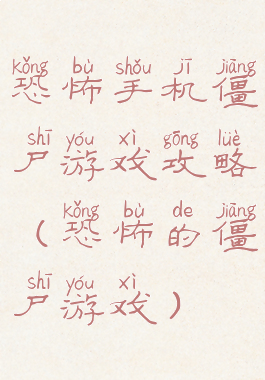 kǒng bù shǒu jī jiāng
恐怖手机僵
shī yóu xì gōng lüè
尸游戏攻略
kǒng bù de jiāng
（恐怖的僵
shī yóu xì
尸游戏）